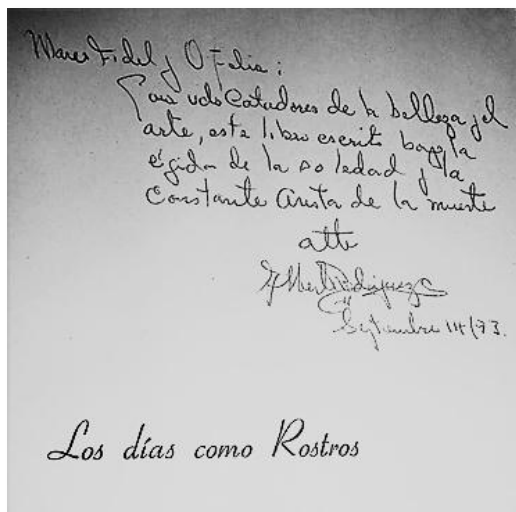 Marco Fidel y Ofelia:
Para uds Catadores de la belleza y el
arte, este libro escrito bajo la
égida de la soledad y la
Constante arista de la muerte
atte
Rodríguez
Septiembre 14/93.
Los días como Rostros